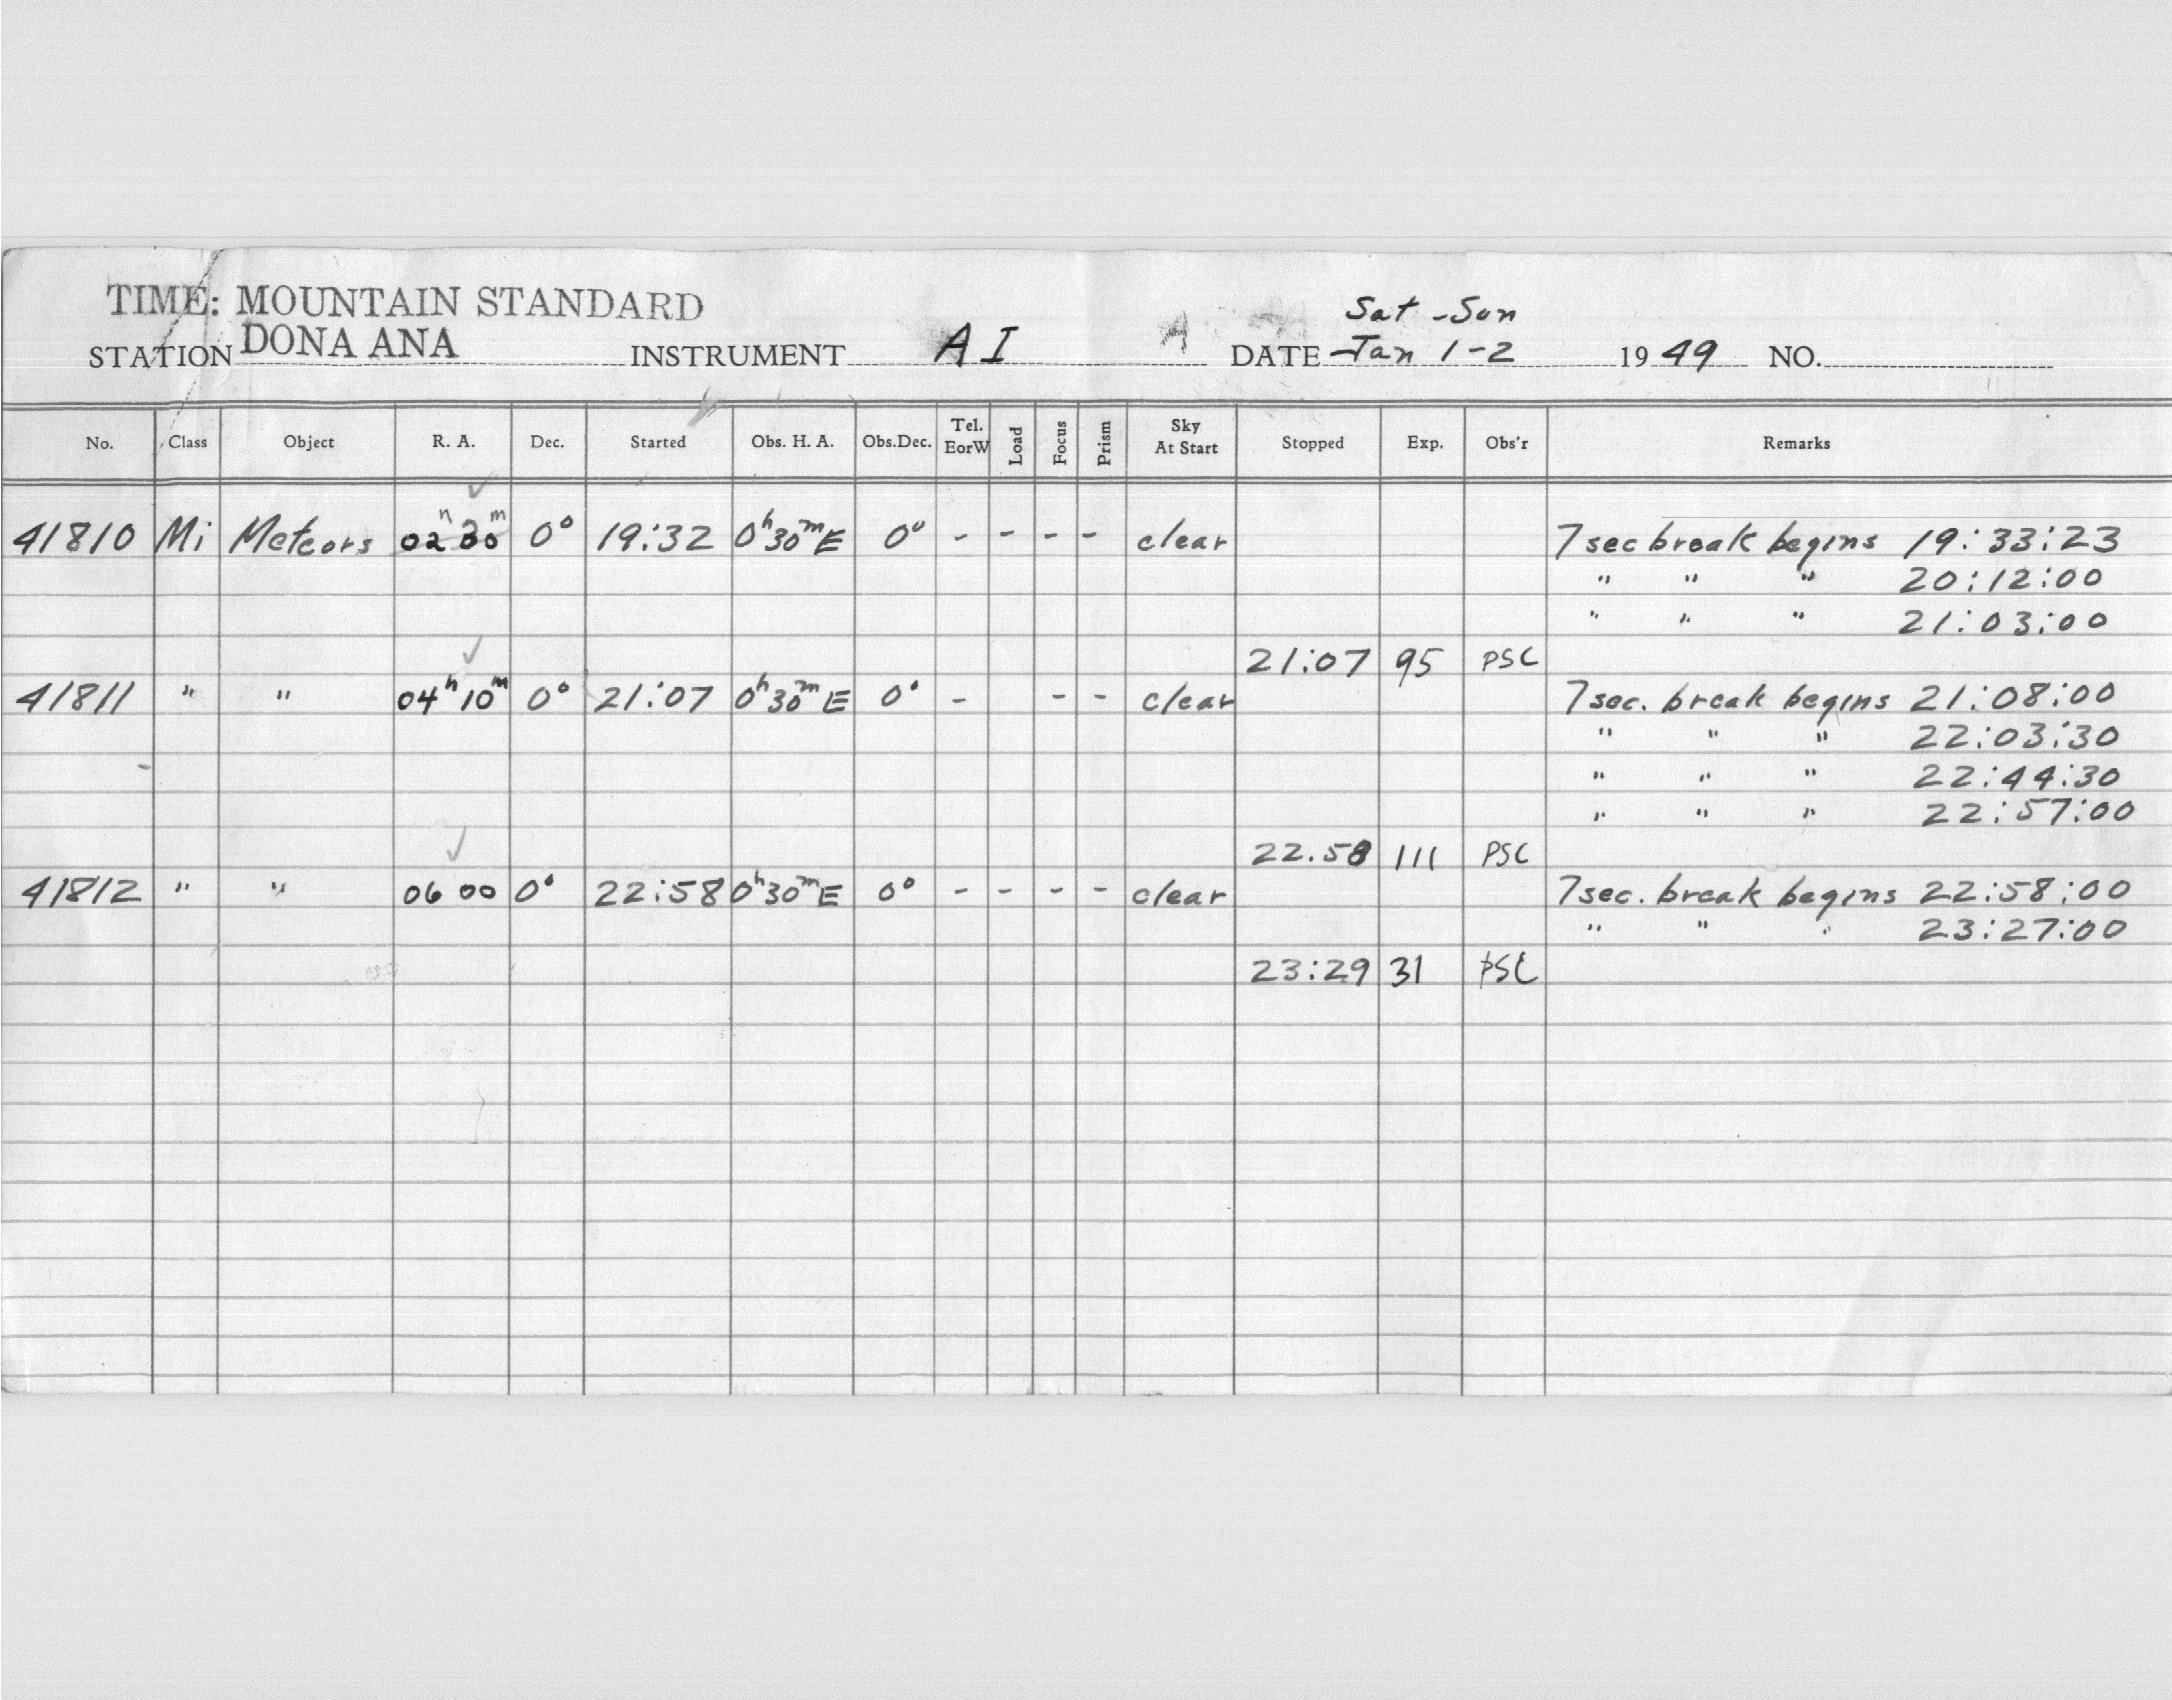 TIME: MOUNTAIN STANDARD
Sat - Sun
STATION DONA ANA INSTRUMENT AI DATE Jan 1-2 1949 NO.
No. Class Object R. A. Dec. Started Obs. H. A. Obs.Dec. Tel. EorW Load Focus Prism Sky At Start Stopped Exp. Obs'r Remarks
41810 Mi Meteors 02h 30m 0° 19:32 0h30mE 0° - - - - clear 7 sec break begins 19:33:23
" " " 20:12:00
" " " 21:03:00
21:07 95 PSC
41811 " " 04h 10m 0° 21:07 0h30mE 0° - - - clear 7 sec. break begins 21:08:00
" " " 22:03:30
" " " 22:44:30
" " " 22:57:00
22.58 111 PSC
41812 " " 06 00 0° 22:58 0h30mE 0° - - - - clear 7 sec. break begins 22:58:00
" " " 23:27:00
23:29 31 PSC